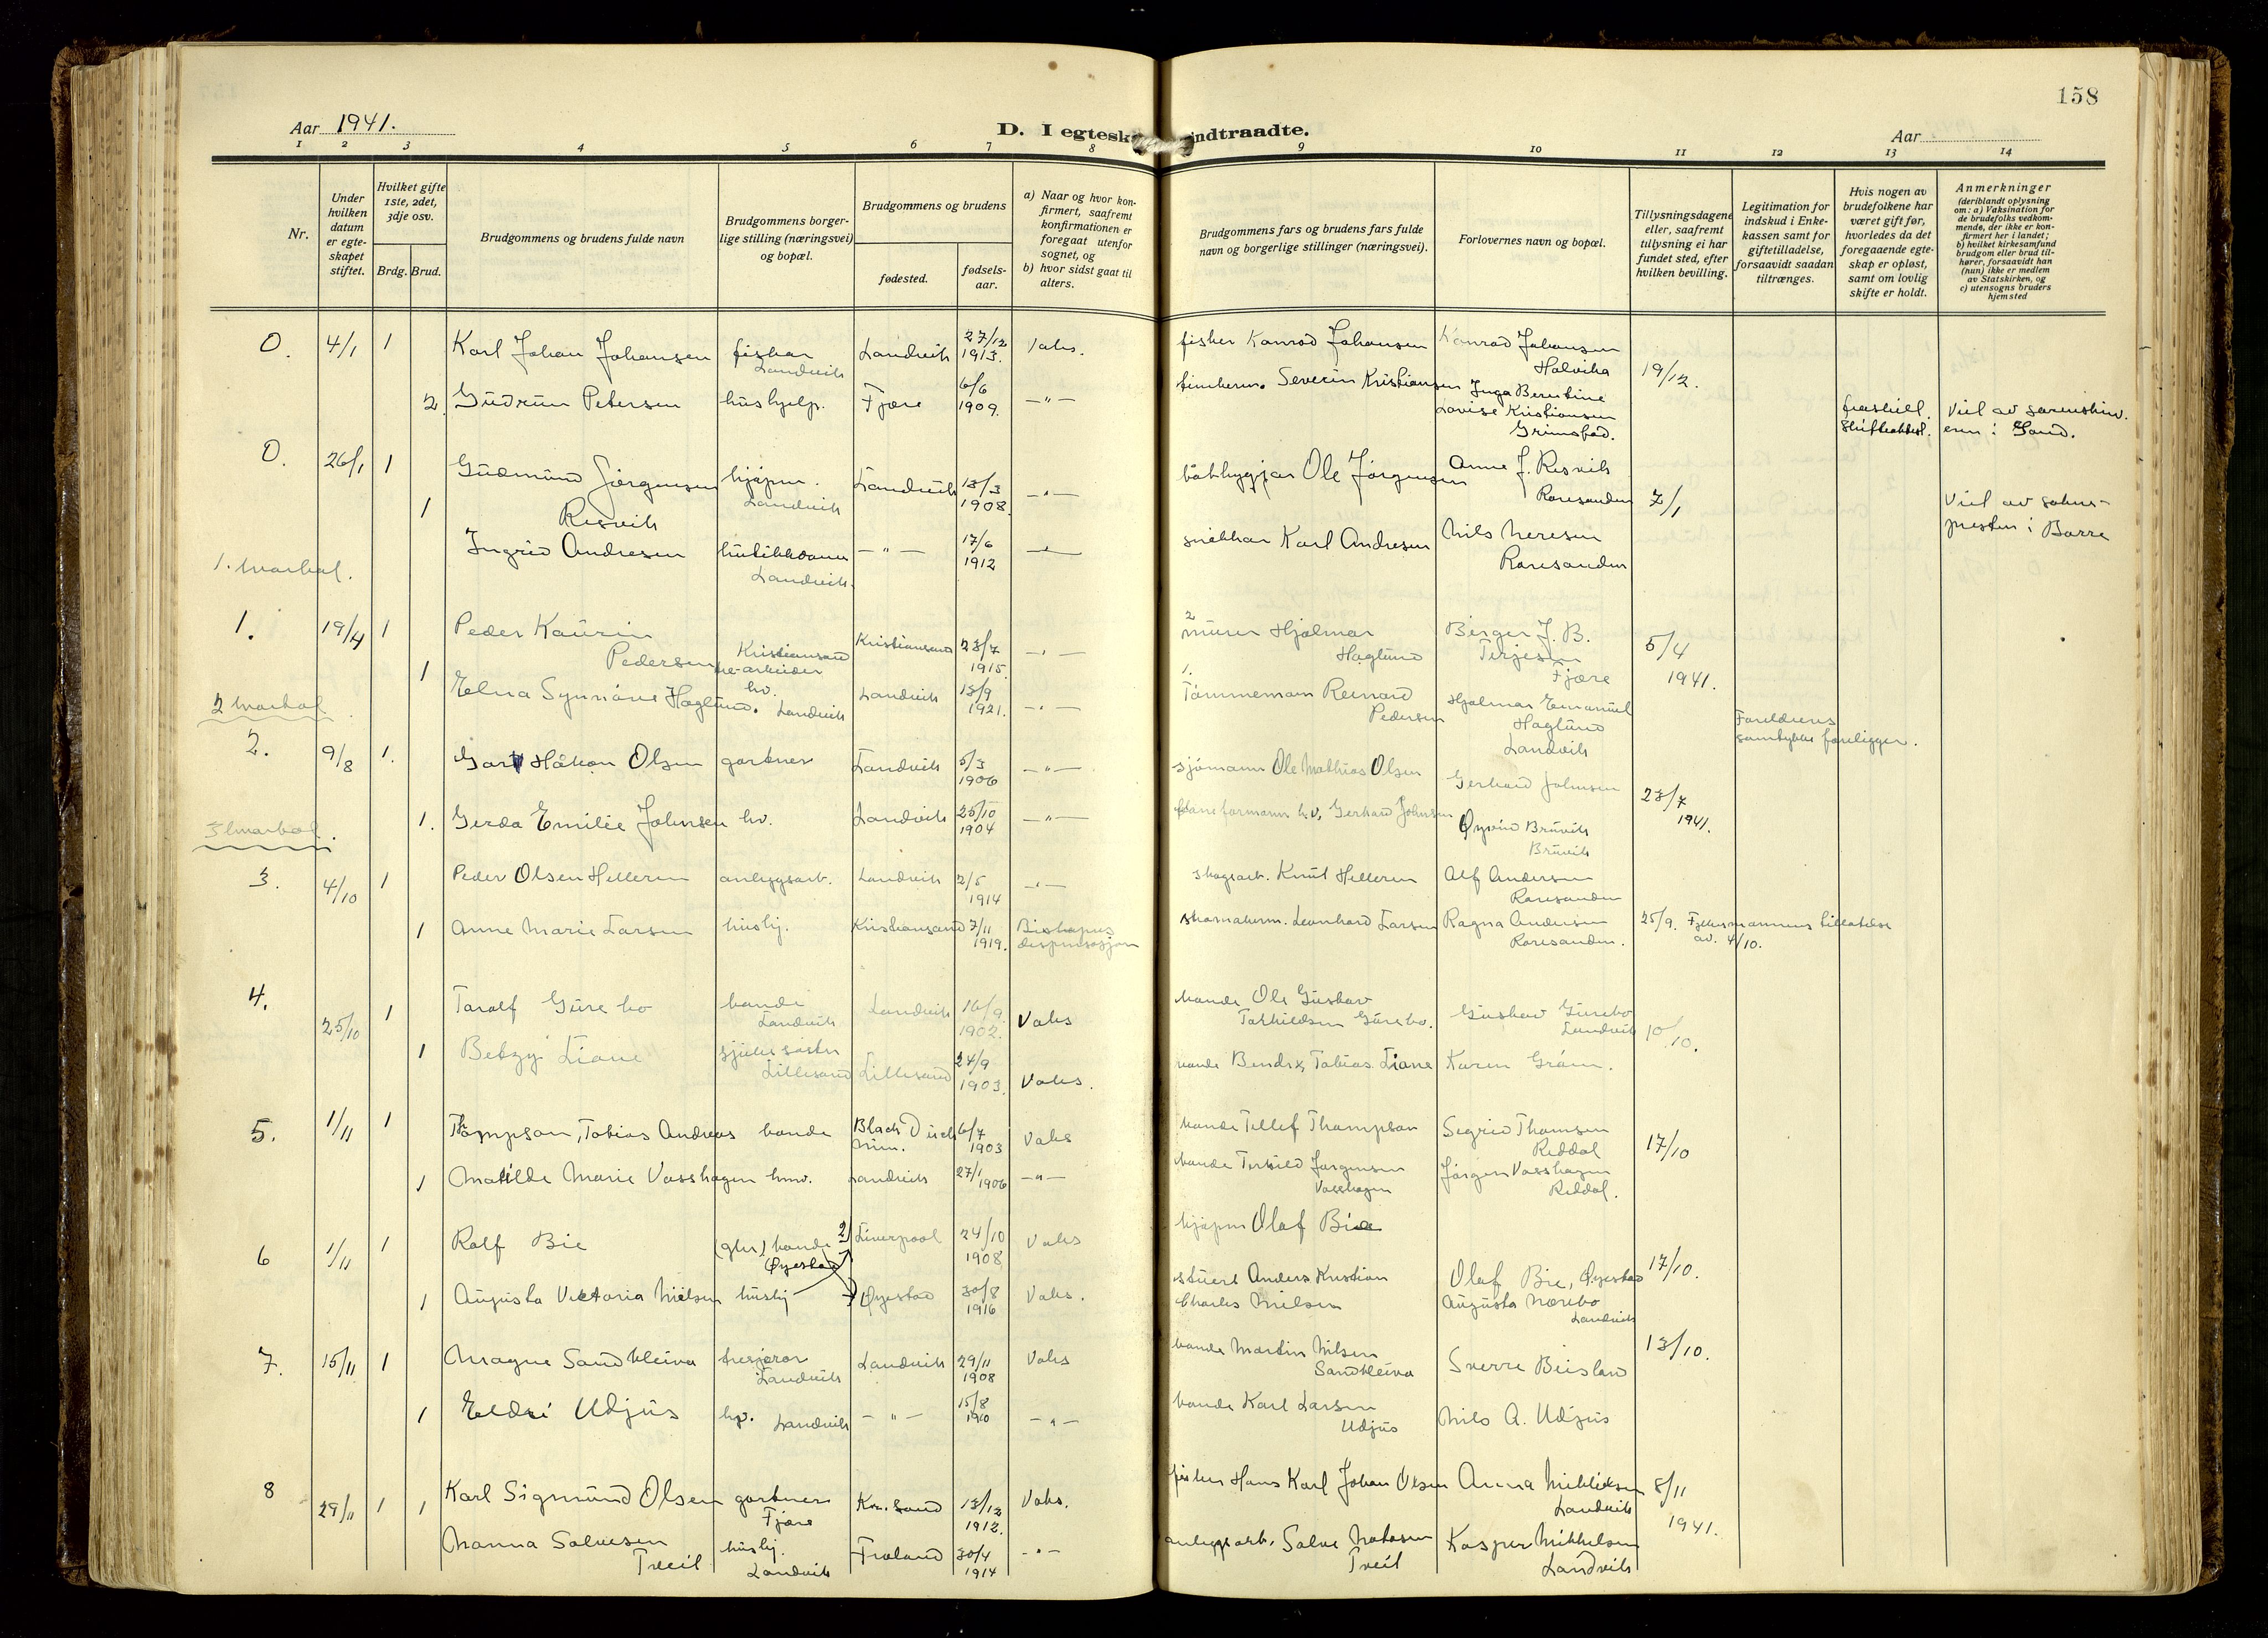 158
Aar 1941.
D. I egtesk ndtraadte.
Aar
1 2 3 4 5 6 7 8 9 10 11 12 13 14
Nr.
Under hvilken datum er egte- skapet stiftet.
Hvilket gifte 1ste, 2det, 3dje osv.
Brdg. Brud.
Brudgommens og brudens fulde navn
Brudgommens borger- lige stilling (næringsvei) og bopæl.
Brudgommens og brudens
fødested.
fødsels- aar.
a) Naar og hvor kon- firmert, saafremt konfirmationen er foregaat utenfor sognet, og
b) hvor sidst gaat til alters.
Brudgommens fars og brudens fars fulde navn og borgerlige stillinger (næringsvei).
Forlovernes navn og bopæl.
Tillysningsdagene eller, saafremt tillysning ei har fundet sted, efter hvilken bevilling.
Legitimation for indskud i Enke- kassen samt for giftetilladelse, forsaavidt saadan tiltrænges.
Hvis nogen av brudefolkene har været gift før, hvorledes da det foregaaende egte- skap er opløst, samt om lovlig skifte er holdt.
Anmerkninger (deriblandt oplysning om: a) Vaksination for de brudefolks vedkom- mende, der ikke er kon- firmert her i landet; b) hvilket kirkesamfund brudgom eller brud til- hører, forsaavidt han (hun) ikke er medlem av Statskirken, og c) utensogns bruders hjemsted
0. 4/1 1 Karl Johan Johansen fisker Landvik Landvik 27/12 1913. Vaks. fisker Konrad Johansen Konrad Johansen Holvika 19/12.
2 Gudrun Petersen hushjelp. Fjære 6/6 1909. —"— tømherm. Severin Kristiansen Inga Berntine Lovise Kristiansen Grimstad. fraskilt. skifteattest. Viet av sorenskriv. eren i Sand.
0. 26/1 1 Gudmund Jørgensen Resvik kjøpm. Landvik Landvik 13/3 1908. —"— båtbyggjar Ole Jørgensen Anne J. Resvik Roresanden 7/1 Viet av sokne- presten i Borre
1 Ingrid Andresen butikkdame Landvik. —"— 17/6 1912 —"— snekkar Karl Andresen Nils Neresen Roresanden
1. kvartal.
1. 19/4 1 Peder Kaurin Pedersen Kristiansand arbeider Kristiansand 23/7 1915. —"— 2 murer Hjalmar Haglund Birger J. B. Terjesen Fjære 5/4 1941.
1 Elna Synnøve Haglund. hv. Landvik Landvik 13/9 1921. —"— 1. Tømmermann Reinard Pedersen Hjalmar Emanuel Haglund Landvik Foreldrenes samtykke foreligger.
2 kvartal
2. 9/8 1. Håkon Olsen gartner Landvik 5/3 1906 —"— sjømann Ole Mathias Olsen Gerhard Johnsen 23/7 1941.
1. Gerda Emilie Johnsen hv. Landvik 25/10 1904 —"— baneformann h.v. Gerhard Johnsen Øyvind Bruvik Bruvik
3 kvartal.
3. 4/10 1 Peder Olsen Helleren anleggsarb. Landvik 2/5 1914 —"— skogsarb. Knut Helleren Alf Andersen Roresanden
1 Anne Marie Larsen hushj. Kristiansand 7/11 1919. Biskopens dispensasjon skomakerm. Leonhard Larsen Ragna Andersen Roresanden. 25/9. Fylkesmannens tillatelse av. 4/10.
4. 25/10 1 Taralf Gurebo bonde Landvik Landvik 16/9 1902. Vaks bonde Ole Gustav Torkildsen Gurebo. Gustav Gurebo Landvik 10/10.
1 Betzy Liane sjukesøster Lillesand Lillesand 24/9 1903. Vaks. bonde Bendix Tobias Liane Karen Gråm.
5. 1/11 1 Thompson, Tobias Andreas bonde Black Duck Minn. 6/7 1903 Vaks bonde Tellef Thompson Sigrid Thomsen Reddal 17/10
1 Matilde Marie Vasshagen hmv. Landvik 27/1 1906 —"— bonde Terkild Jørgensen Vasshagen Jørgen Vasshagen Reddal.
6 1/11 1 Rolf Bie (gbr) bonde Øyestad 2) Liverpool 24/10 1908 Vaks kjøpm Olaf Bie Olaf Bie, Øyestad 17/10.
1 Augusta Victoria Nielsen hushj Øyestad 30/8 1916 Vaks. stuert Anders Kristian Charles Nielsen Augusta Nærebo Landvik
7. 15/11 1 Magne Sandkleiva Landvik Landvik 29/11 1908 Vaks bonde Martin Nilsen Sandkleiva Sverre Beisland 13/10.
1 Eldri Udjus hv. Landvik —"— 15/8 1910 —"— bonde Karl Larsen Udjus Nils A. Udjus
8 29/11 1 1 Karl Sigmund Olsen gartner Fjære Kr.sand 13/12 1912. Vaks. fisker Hans Karl Johan Olsen Anna Mikkelsen Landvik 8/11 1941.
Nanna Salvesen Tveit hushj. Landvik Froland 30/4 1914 —"— anleggsarb. Salve Tveit Kasper Mikkelsen Landvik